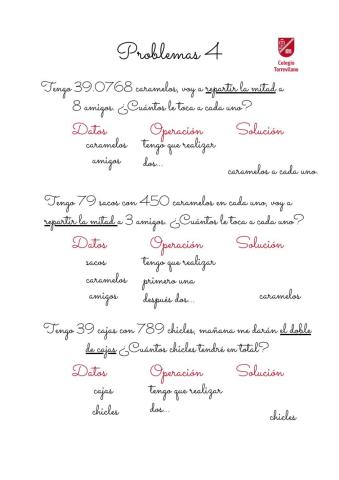 Problemas 4
Colegio
Torrevilano
Tengo 39.0768 caramelos, voy a repartir la mitad a
8 amigos. ¿Cuántos le toca a cada uno?
Datos Operación Solución
caramelos tengo que realizar
amigos dos...
caramelos a cada uno.
Tengo 79 sacos con 450 caramelos en cada uno, voy a
repartir la mitad a 3 amigos. ¿Cuántos le toca a cada uno?
Datos Operación Solución
sacos tengo que realizar
caramelos primero una
amigos después dos... caramelos
Tengo 39 cajas con 789 chicles, mañana me darán el doble
de cajas ¿Cuántos chicles tendré en total?
Datos Operación Solución
cajas tengo que realizar
chicles dos...
chicles